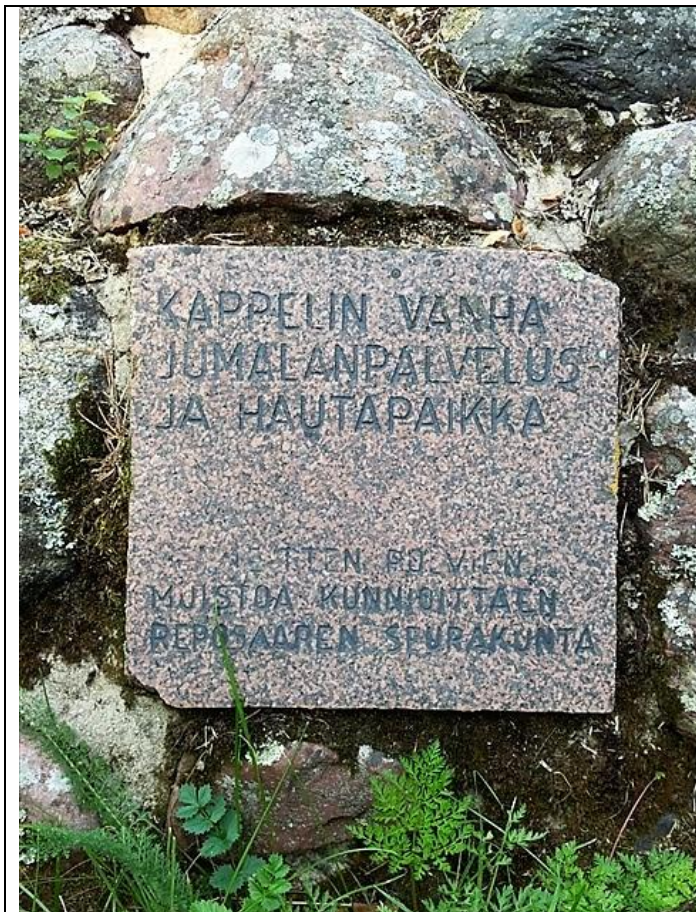 KAPPELIN VANHA
JUMALANPALVELUS-
JA HAUTAPAIKKA
POLVIEN
MUISTOA KUNNIOITTAEN
REPOSAAREN SEURAKUNTA